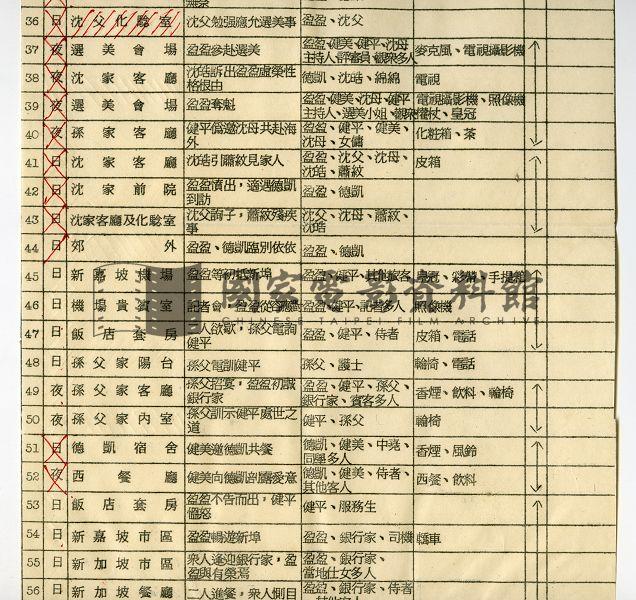 36 日 沈父化驗室 沈父勉強應允選美事 盈盈、沈父
37 夜 選美會場 盈盈參赴選美 盈盈、健美、健平、沈母 主持人、評審員、觀眾多人 麥克風、電視攝影機
38 夜 沈家客廳 沈皓訴出盈盈虛榮性格根由 德凱、沈皓、綿綿 電視
39 夜 選美會場 盈盈奪魁 盈盈、健美、沈母、健平 主持人、選美小姐、觀眾 電視攝影機、照像機 權杖、皇冠
40 夜 孫家客廳 健平偽邀沈母共赴海外 盈盈、健平、健美、沈母、女傭 化粧箱、茶
41 日 沈家客廳 沈皓引蕭紋見家人 盈盈、沈父、沈母、沈皓、蕭紋 皮箱
42 日 沈家前院 盈盈憤出,適遇德凱到訪 盈盈、德凱
43 日 沈家客廳及化驗室 沈父詢子,蕭紋殘疾事 沈父、沈母、蕭紋、沈皓
44 日 郊外 盈盈、德凱臨別依依 盈盈、德凱
45 日 新嘉坡機場 盈盈等初抵新埠 盈盈、健平、其他旅客 皇冠、彩帶、手提箱
46 日 機場貴賓室 記者會,盈盈從容應 盈盈、健平、記者多人 照像機
47 日 飯店套房 二人欲歇,孫父電詢健平 盈盈、健平、侍者 皮箱、電話
48 日 孫父家陽台 孫父電訓健平 孫父、護士 輪椅、電話
49 夜 孫父家客廳 孫父招宴,盈盈初識銀行家 盈盈、健平、孫父、銀行家、賓客多人 香煙、飲料、輪椅
50 夜 孫父家內室 孫父訓示健平處世之道 健平、孫父 輪椅
51 日 德凱宿舍 健美邀德凱共餐 德凱、健美、中堯、同學多人 香煙、風鈴
52 夜 西餐廳 健美向德凱剖露愛意 德凱、健美、侍者、其他客人 西餐、飲料
53 日 飯店套房 盈盈不告而出,健平慍怒 健平、服務生
54 日 新嘉坡市區 盈盈暢遊新埠 盈盈、銀行家、司機 轎車
55 日 新加坡市區 衆人逢迎銀行家,盈盈與有榮焉 盈盈、銀行家、當地仕女多人
56 日 新加坡餐廳 二人進餐,衆人側目 盈盈、銀行家、侍者
國家電影資料館
CHINESE TAIPEI FILM ARCHIVE